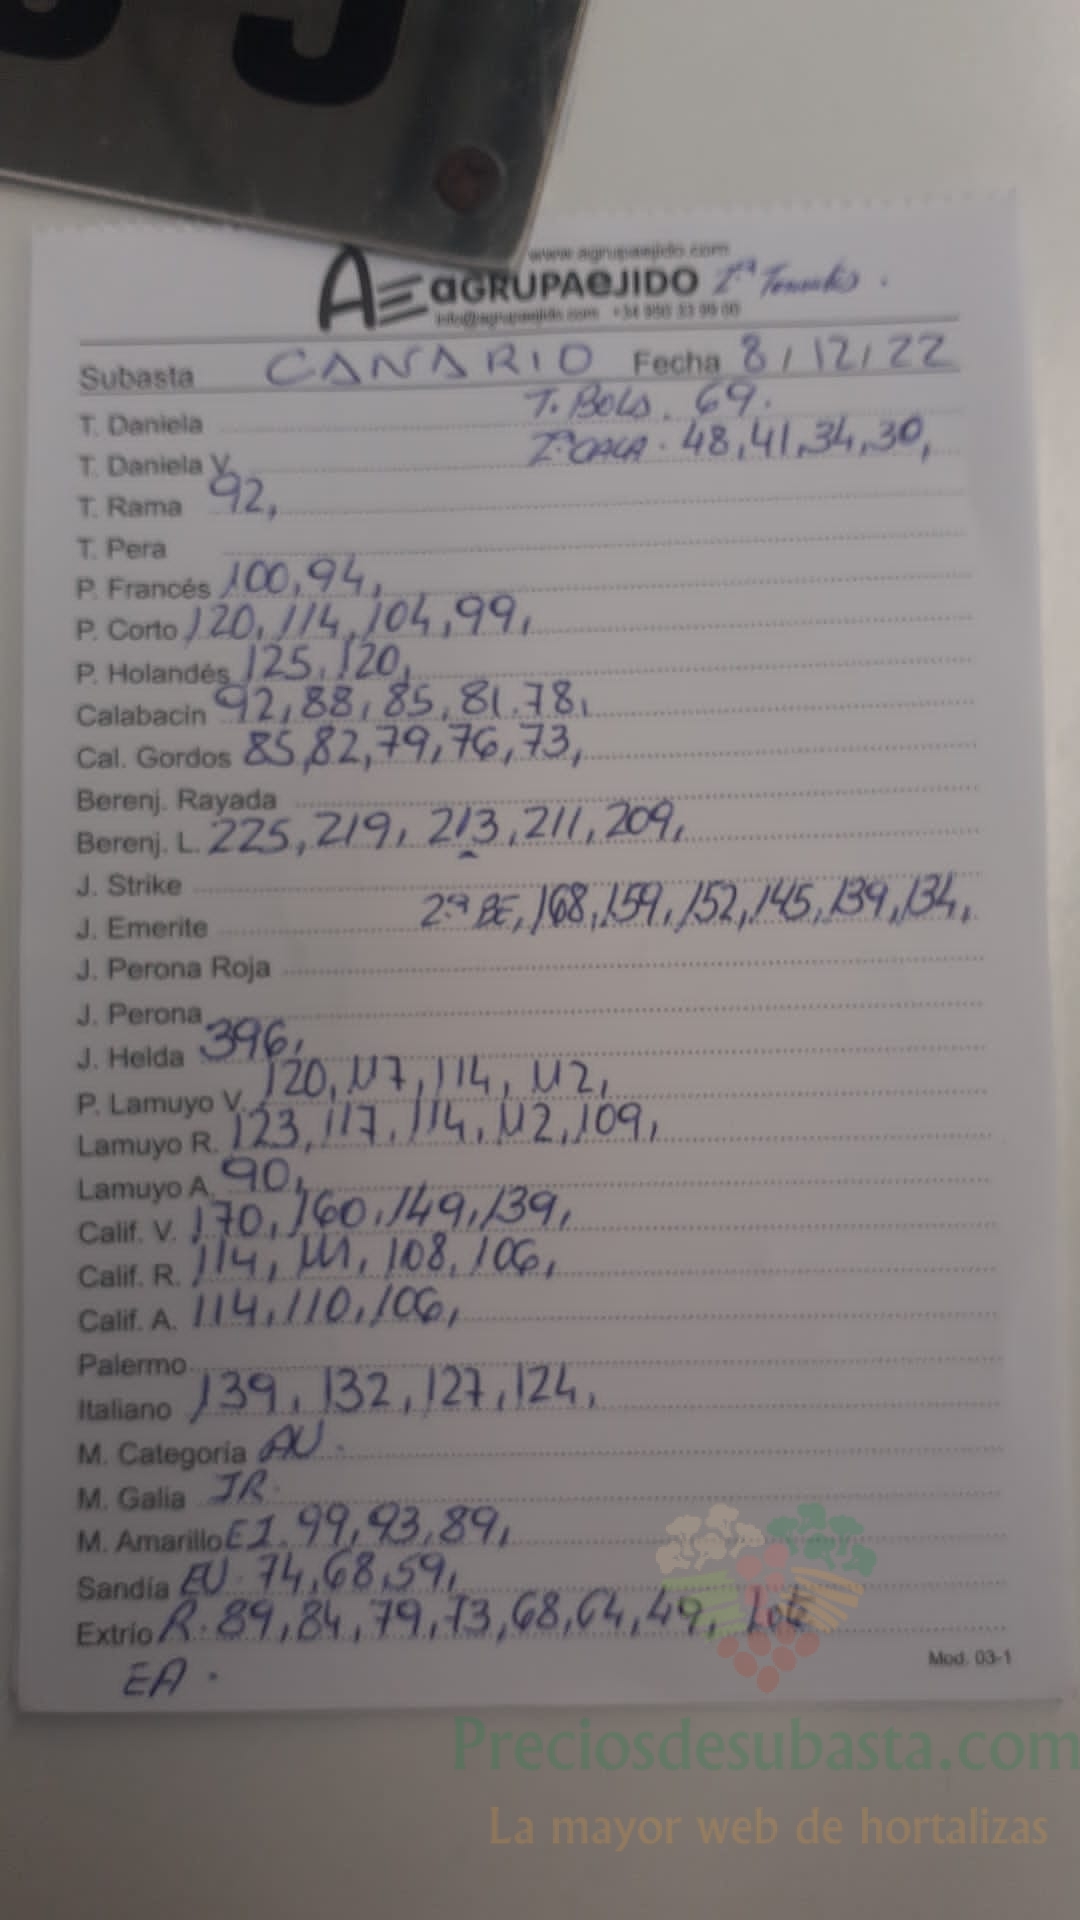 www.agrupaejido.com
AE aGRUPAeJIDO 2ª Tomates.
info@agrupaejido.com +34 950 33 99 00
Subasta CANARIO Fecha 8/12/22
T. Daniela T. BOLA. 69.
T. Daniela V. 2ª CALA. 48,41,34,30,
T. Rama 92,
T. Pera
P. Francés 100,94,
P. Corto 120,114,104,99,
P. Holandés 125,120,
Calabacin 92,88,85,81.78,
Cal. Gordos 85,82,79,76,73,
Berenj. Rayada
Berenj. L. 225,219,213,211,209,
J. Strike
J. Emerite 2ª BE,168,159,152,145,139,134,
J. Perona Roja
J. Perona
J. Helda 396,
P. Lamuyo V. 120,117,114,112,
Lamuyo R. 123,117,114,112,109,
Lamuyo A. 90,
Calif. V. 170,160,149,139,
Calif. R. 114,111,108,106,
Calif. A. 114,110,106,
Palermo
Italiano 139,132,127,124,
M. Categoria AU.
M. Galia JR.
M. Amarillo EI. 99,93,89,
Sandía EU. 74,68,59,
Extrio R. 89,84,79,73,68,64,49,
Mod. 03-1
EA.
Preciosdesubasta.com
La mayor web de hortalizas